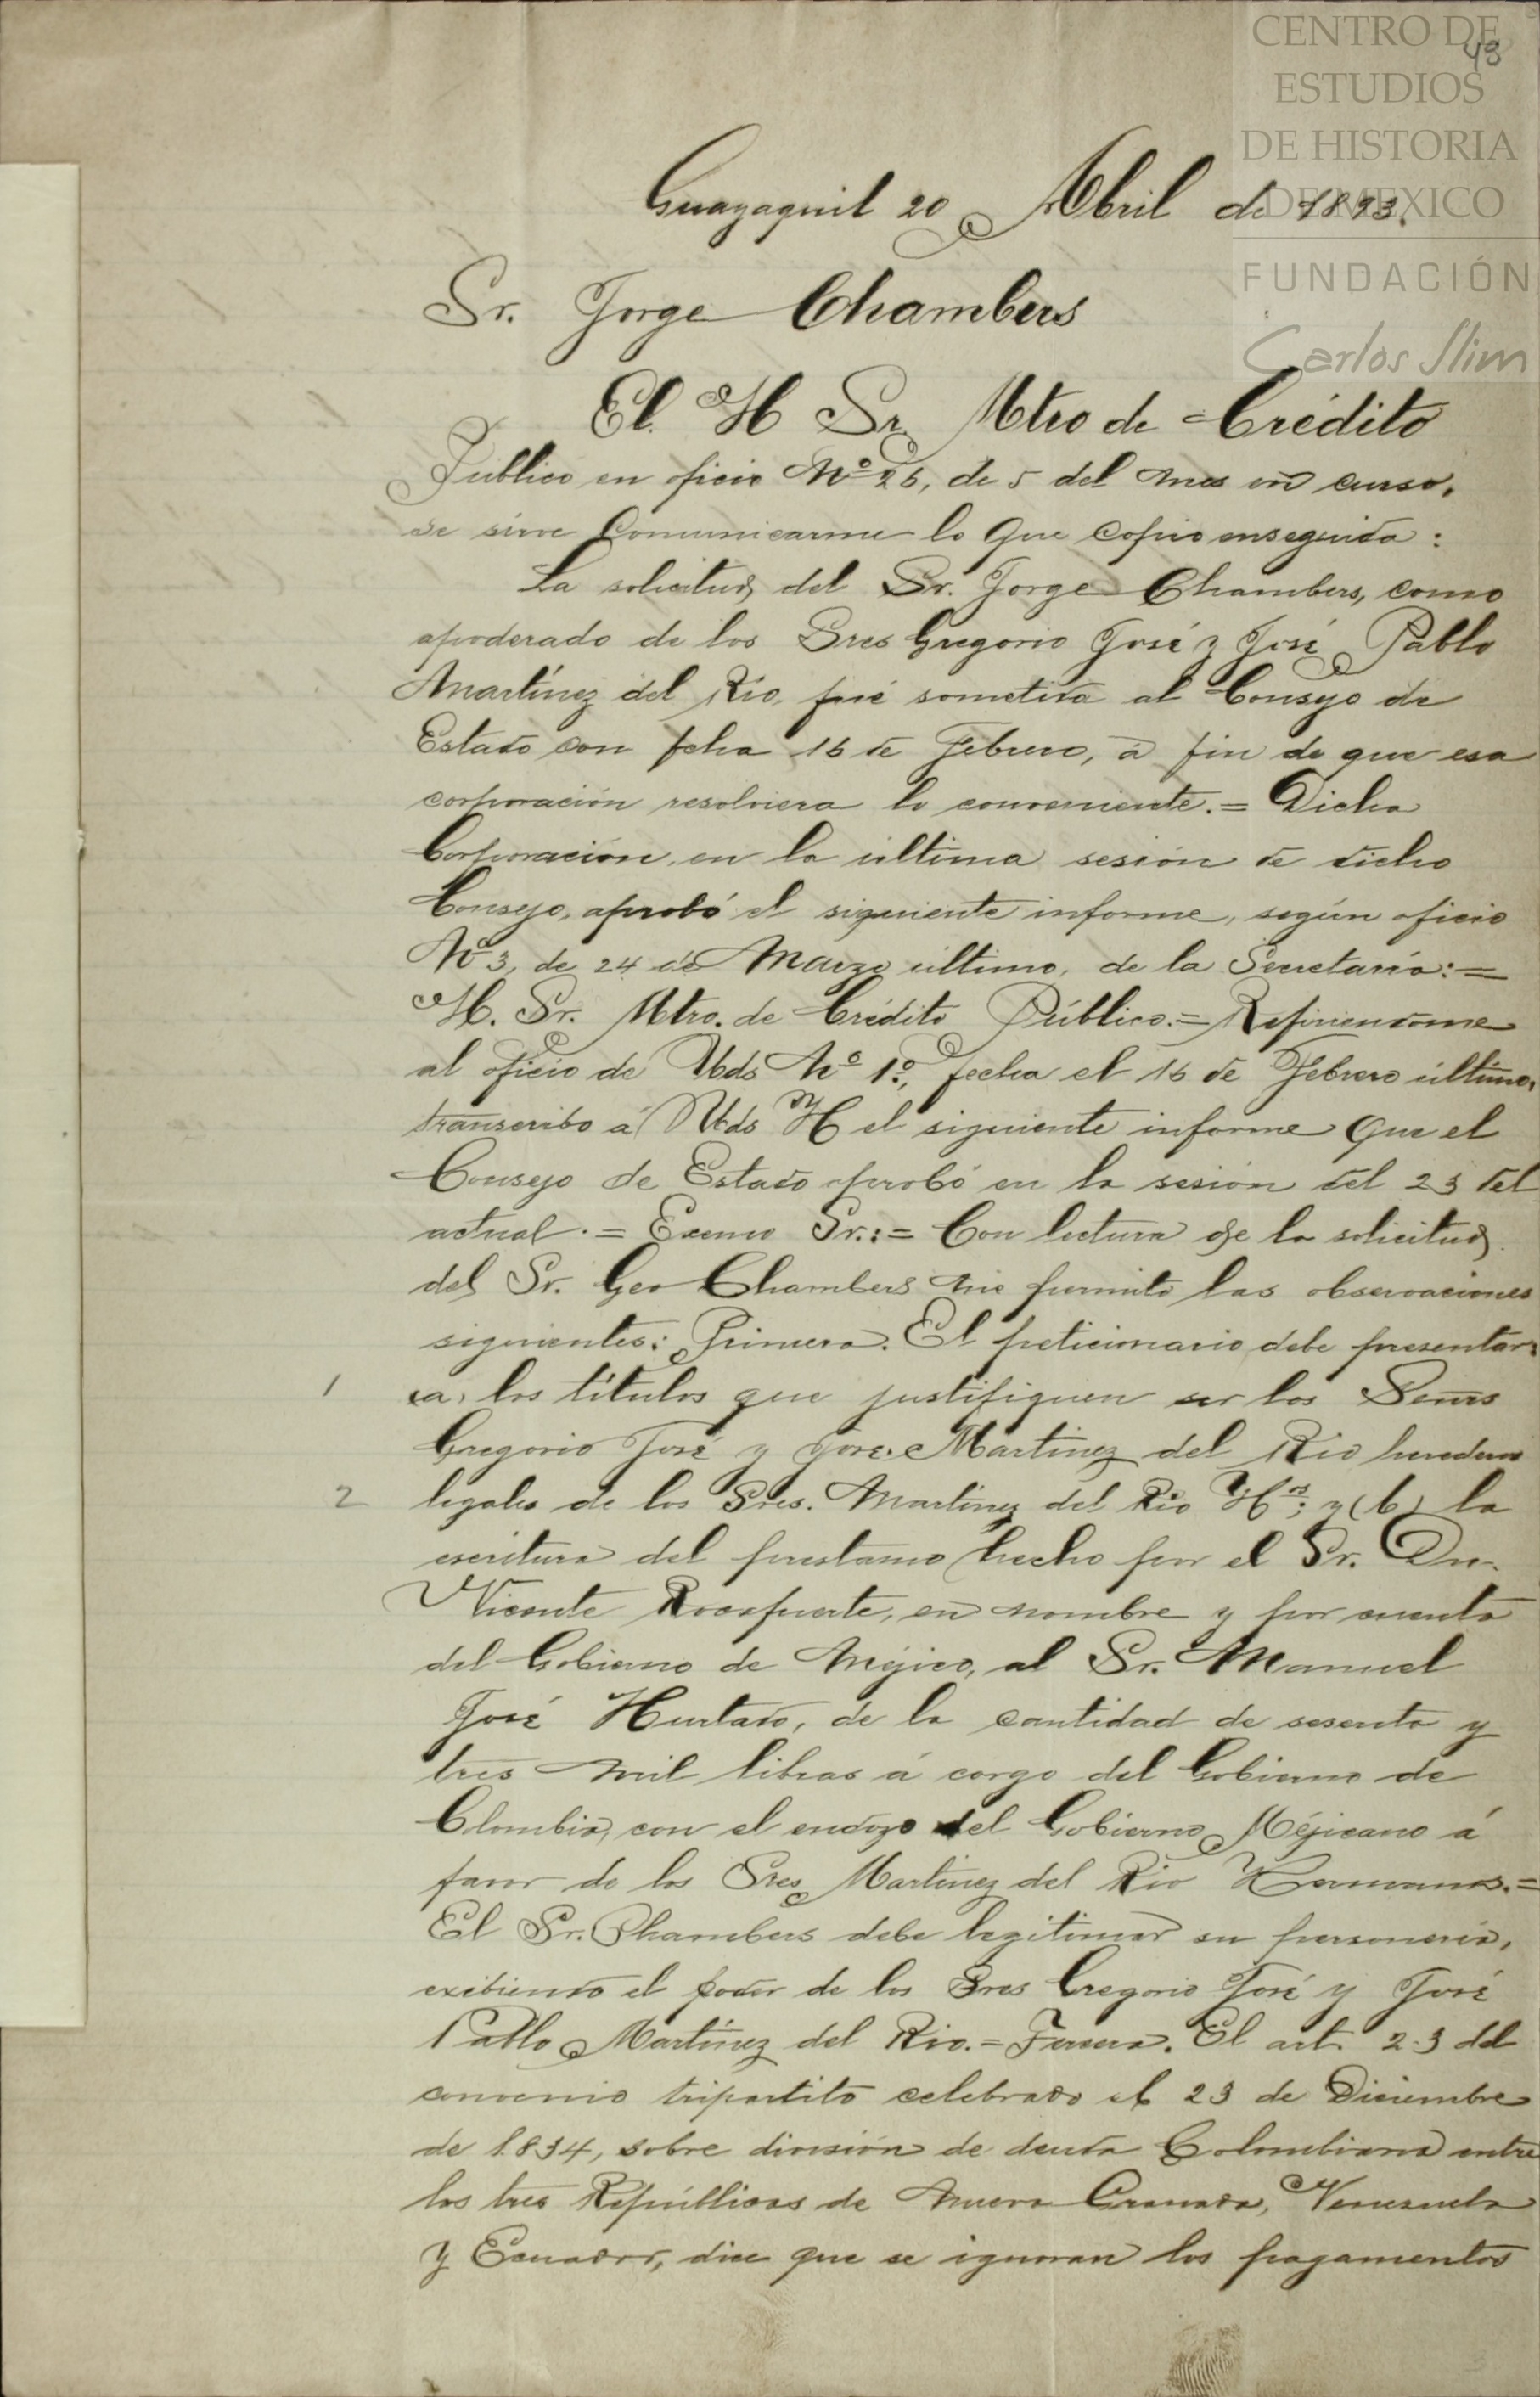 CENTRO DE
ESTUDIOS
DE HISTORIA
DE MEXICO
FUNDACIÓN
Carlos Slim
43
Guayaquil 20 Abril de 1893.
Sr. Jorge Chambers
El. H Sr. Mtro de Crédito
Público en oficio Nº 26, de 5 del mes en curso,
se sirve comunicarme lo que copio enseguida:
La solicitud del Sr. Jorge Chambers, como
apoderado de los Sres Gregorio José y José Pablo
Martínez del Río, fué sometida al Consejo de
Estado con fcha 16 de Febrero, á fin de que esa
corporación resolviera lo conveniente. = Dicha
Corporación, en la última sesión de dicho
Consejo, aprobó el siguiente informe, según oficio
Nº 3, de 24 de Marzo último, de la Secretaría: =
H. Sr. Mtro. de Crédito Público. = Refiriendome
al oficio de Uds Nº 1º, fecha el 16 de Febrero último,
transcribo á Uds H el siguiente informe que el
Consejo de Estado aprobó en la sesión del 23 del
actual. = Excmo Sr.: = Con lectura de la solicitud
del Sr. Geo Chambers me permito las observaciones
siguientes: Primera. El peticionario debe presentar:
1 (a) los títulos que justifiquen ser los Señrs
Gregorio José y José Martinez del Rio herederos
2 legales de los Sres. Martinez del Rio Hs; y (b) la
escritura del prestamo hecho por el Sr. Dn.
Vicente Rocafuerte, en nombre y por cuenta
del Gobierno de Méjico, al Sr. Manuel
José Hurtado, de la cantidad de sesenta y
tres mil libras á cargo del Gobierno de
Colombia, con el endozo del Gobierno Méjicano á
favor de los Sres Martinez del Rio Hermanos. =
El Sr. Chambers debe legitimar su personería,
exibiendo el poder de los Sres Gregorio José y José
Pablo Martínez del Rio. = Tercera. El art. 23 del
convenio tripartito celebrado el 23 de Diciembre
de 1834, sobre división de deuda Colombiana entre
las tres Repúblicas de Nueva Granada, Venezuela
y Ecuador, dice que se ignoran los pagamentos